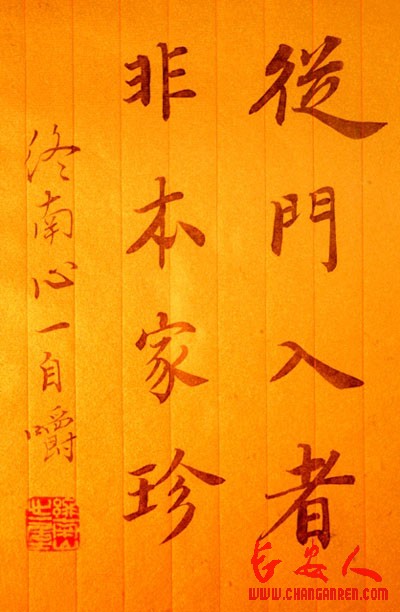 從門入者
非本家珍
終南心一自嚼
長安人
www.CHANGANREN.com